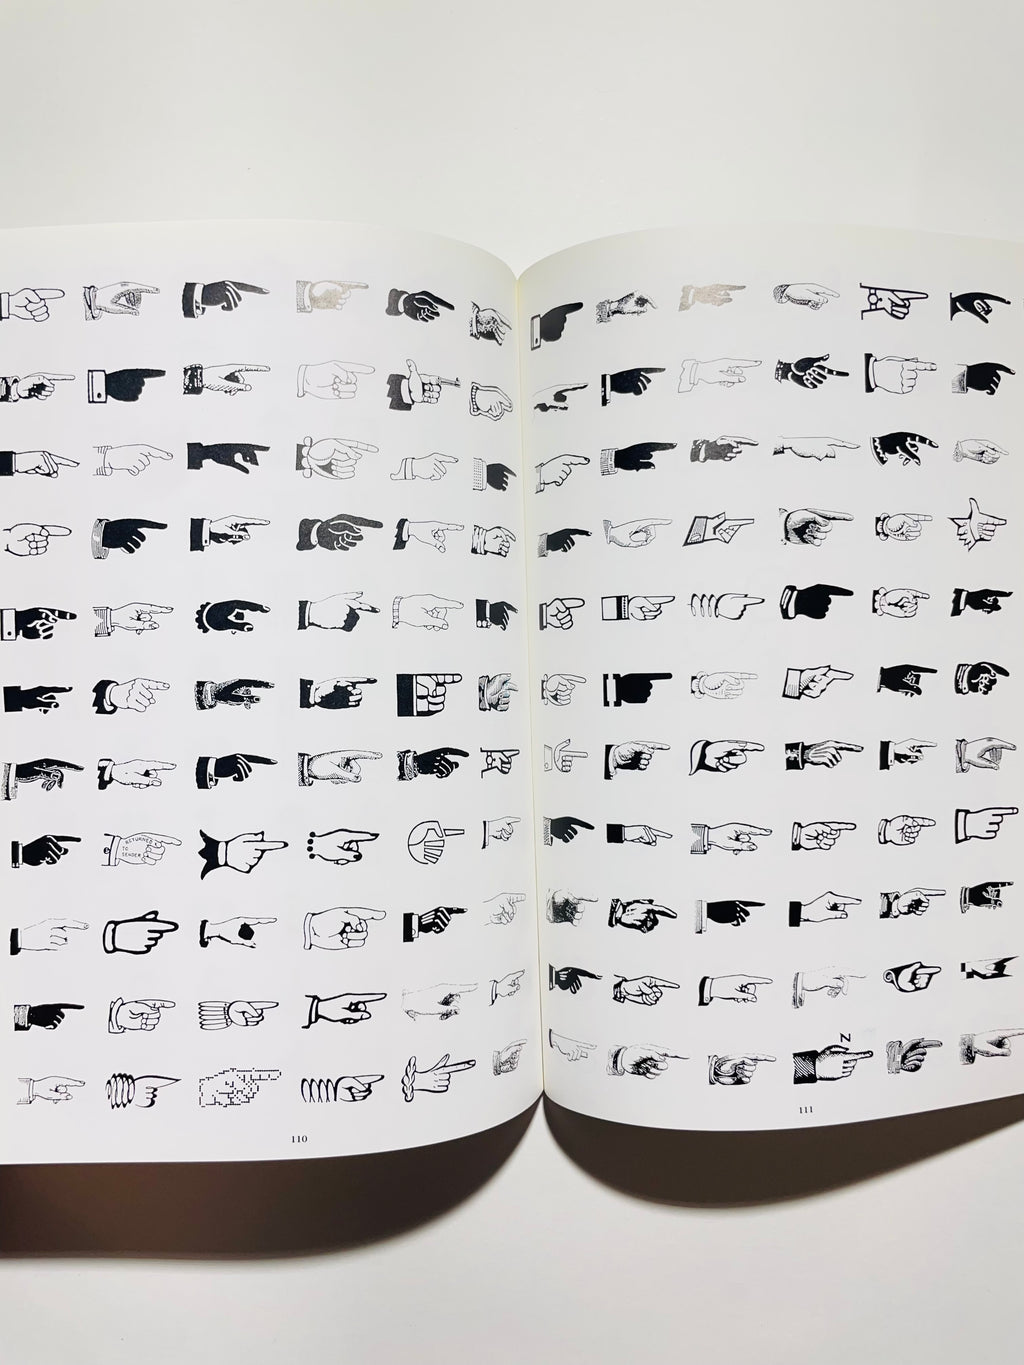 RETURNED
TO
SENDER
Z
110
111